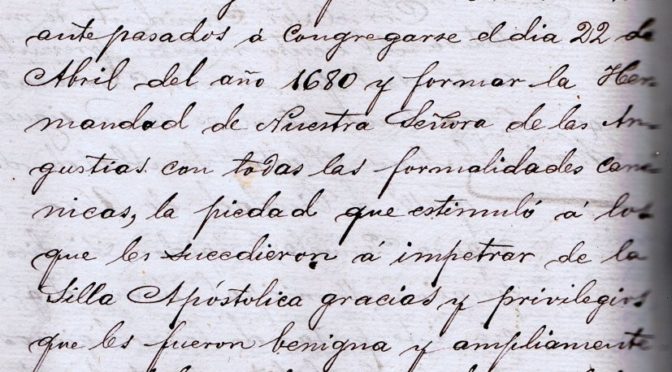 antepasados á congregarse el dia 22 de
Abril del año 1680 y formar la Her
mandad de Nuestra Señora de las An-
gustias con todas las formalidades canó
nicas, la piedad que estimuló á los
que les succedieron á impetrar de la
Silla Apóstolica gracias y privilegios
que les fueron benigna y ampliamente